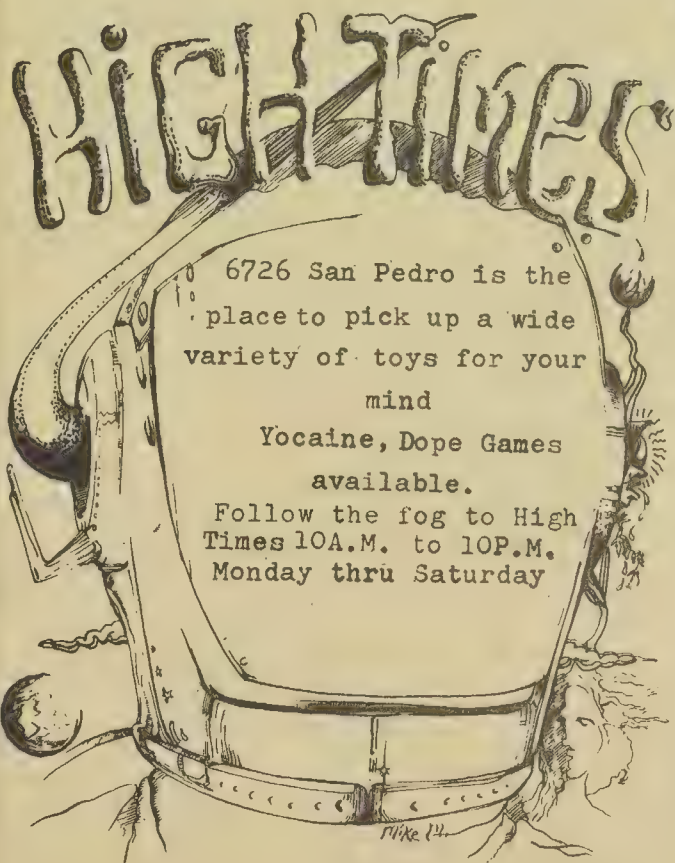 HiGH Times
6726 San Pedro is the
place to pick up a wide
variety of toys for your
mind
Yocaine, Dope Games
available.
Follow the fog to High
Times 10A.M. to 10P.M.
Monday thru Saturday
Mike